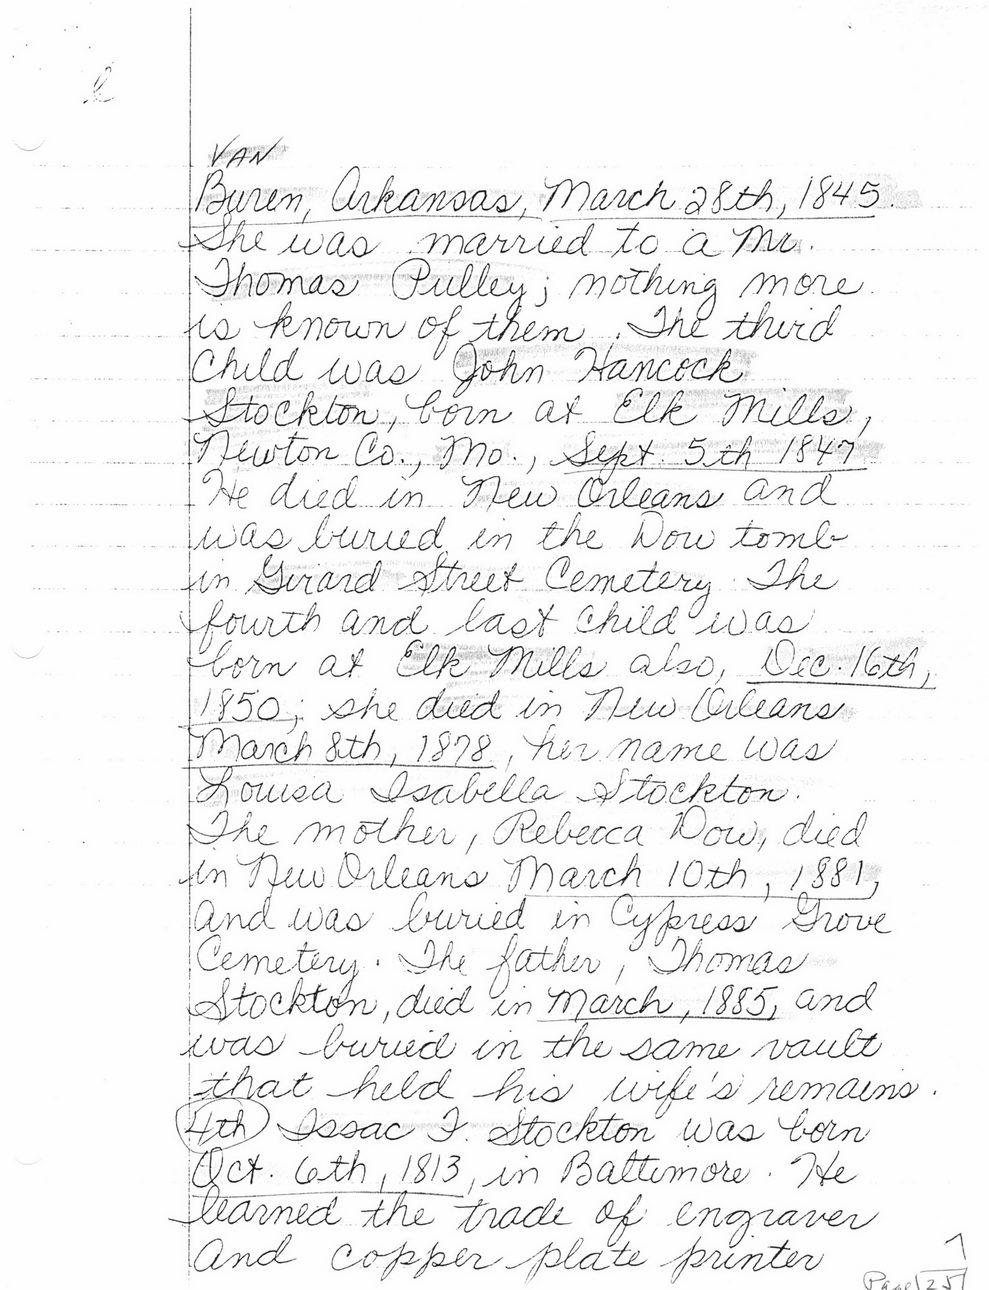 l
VAN
Buren, Arkansas, March 28th, 1845.
She was married to a Mr.
Thomas Pulley; nothing more
is known of them. The third
child was John Hancock
Stockton, born at Elk Mills,
Newton Co., Mo., Sept. 5th 1847
He died in New Orleans and
was buried in the Dow tomb
in Girard Street Cemetery. The
fourth and last child was
born at Elk Mills also, Dec. 16th,
1850; she died in New Orleans
March 8th, 1878, her name was
Louisa Isabella Stockton.
The mother, Rebecca Dow, died
in New Orleans March 10th, 1881,
and was buried in Cypress Grove
Cemetery. The father, Thomas
Stockton, died in March, 1885, and
was buried in the same vault
that held his wife's remains.
4th Issac F. Stockton was born
Oct. 6th, 1813, in Baltimore. He
learned the trade of engraver
and copper plate printer
Page 25